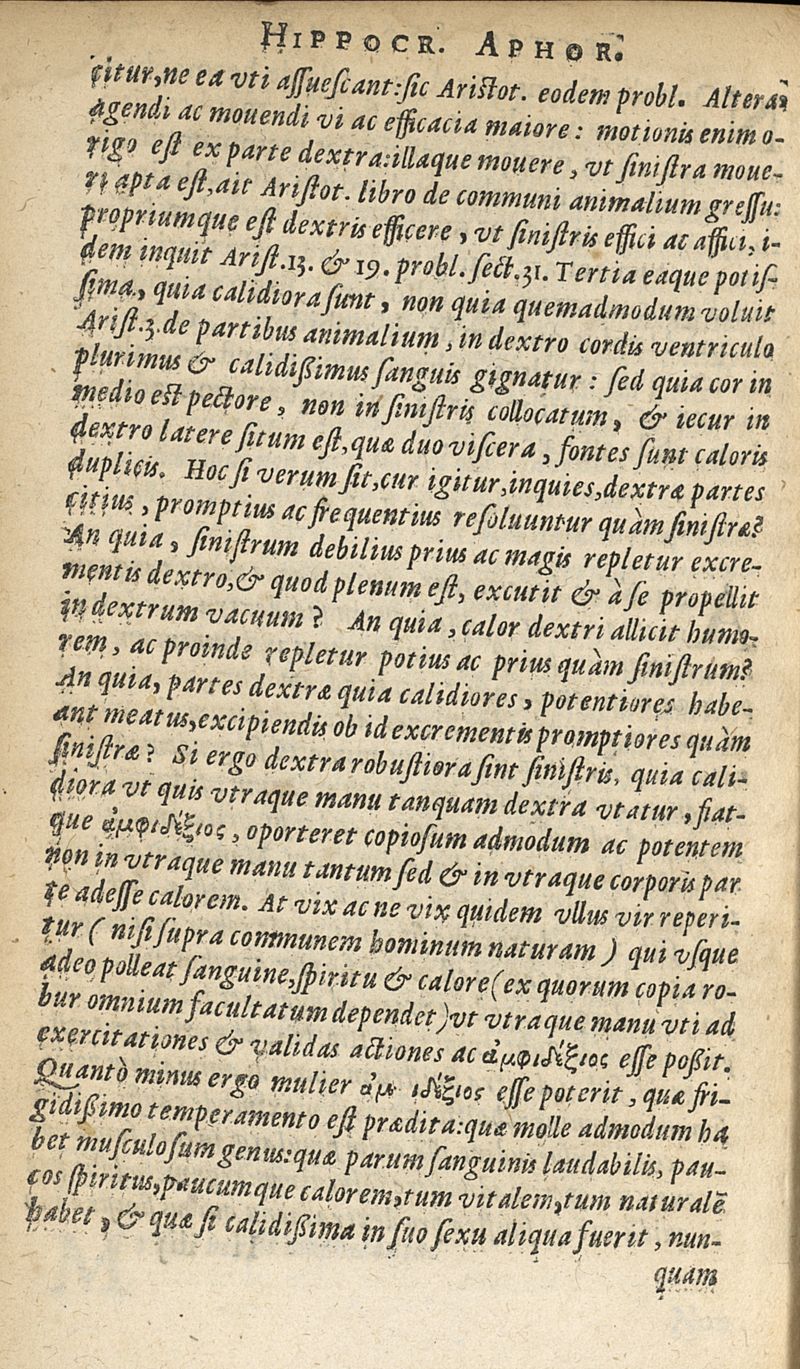 HIPPOCR. APHOR.
citur, ne ea vti assuescant: sic Aristot. eodem probl. Altera
agendi ac mouendi vi ac efficacia maiore: motionis enim o-
rigo est ex parte dextra: illaque mouere, vt sinistra moue-
ri apta est, ait Aristot. libro de communi animalium gressu:
propriumque est dextris efficere, vt sinistris effici ac affici, i-
dem inquit Arist. 13. & 19. probl. sect. 31. Tertia eaque potis-
sima, quia calidiora sunt, non quia quemadmodum voluit
Arist. 3. de partibus animalium, in dextro cordis ventriculo
plurimus & calidißimus sanguis gignatur: sed quia cor in
medio est pectore, non in sinistris collocatum, & iecur in
dextro latere situm est, quæ duo viscera, fontes sunt caloris
duplicis. Hoc si verum sit, cur igitur, inquies, dextræ partes
citius, promptius ac frequentius resoluuntur quàm sinistræ?
An quia, sinistrum debilius prius ac magis repletur excre-
mentis dextro, & quod plenum est, excutit & à se propellit
in dextrum vacuum? An quia, calor dextri allicit humo-
rem, ac proinde repletur potius ac prius quàm sinistrum?
An quia, partes dextræ quia calidiores, potentiores habe-
ant meatus, excipiendis ob id excrementis promptiores quàm
sinistræ? Si ergo dextra robustiora sint sinistris, quia cali-
diora vt quis vtraque manu tanquam dextra vtatur, fiat-
que ἀμφιδέξιος, oporteret copiosum admodum ac potentem
non in vtraque manu tantum sed & in vtraque corporis par
te adesse calorem. At vix ac ne vix quidem vllus vir reperi-
tur (nisi supra communem hominum naturam) qui vsque
adeo polleat sanguine, spiritu & calore (ex quorum copia ro-
bur omnium facultatum dependet) vt vtraque manu vti ad
exercitationes & validas actiones ac ἀμφιδέξιος esse poßit.
Quantò minus ergo mulier ἀμ ιδέξιος esse poterit, quæ fri-
gidißimo temperamento est prædita: quæ molle admodum ha
bet musculosum genus: quæ parum sanguinis laudabilis, pau-
cos spiritus, paucumque calorem, tum vitalem, tum naturalē
habet, & quæ si calidißima in suo sexu aliqua fuerit, nun-
quam